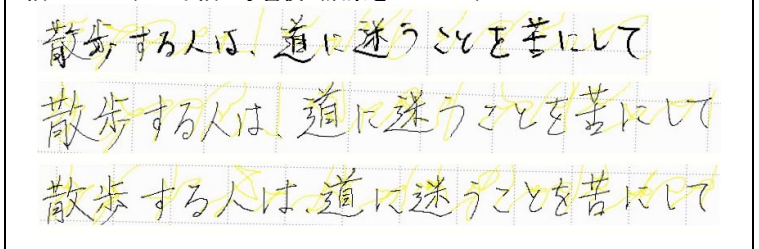 散歩する人は、道に迷うことを苦にして
散歩する人は、道に迷うことを苦にして
散歩する人は、道に迷うことを苦にして